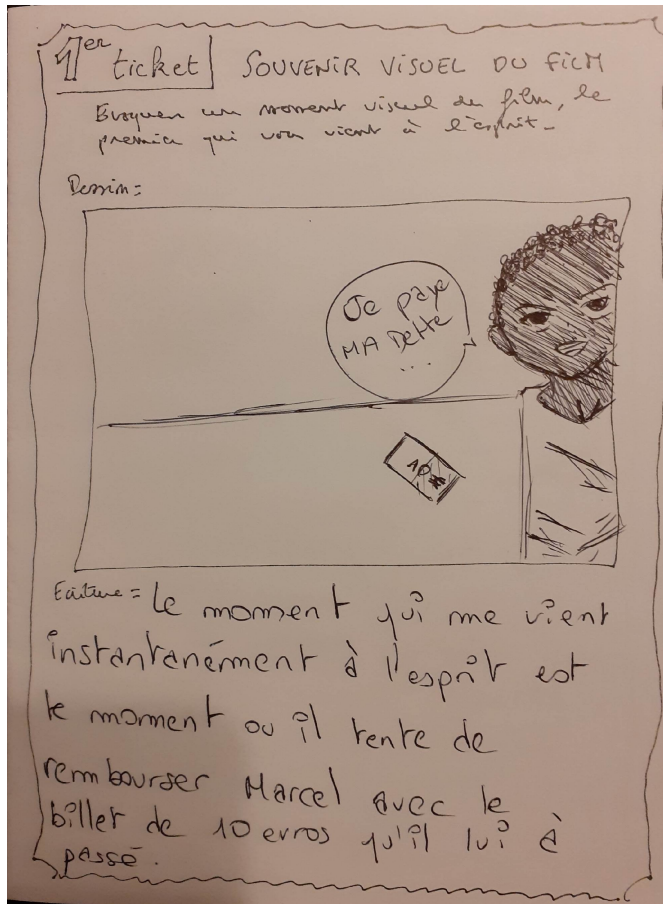 1er ticket SOUVENIR VISUEL DU FILM
Evoquer un moment visuel du film, le
premier qui vous vient à l'esprit-
Dessin =
Je paye
MA Dette
...
10 €
Ecriture = Le moment qui me vient
instantanément à l'esprit est
le moment ou il tente de
rembourser Marcel avec le
billet de 10 euros qu'il lui à
passé.